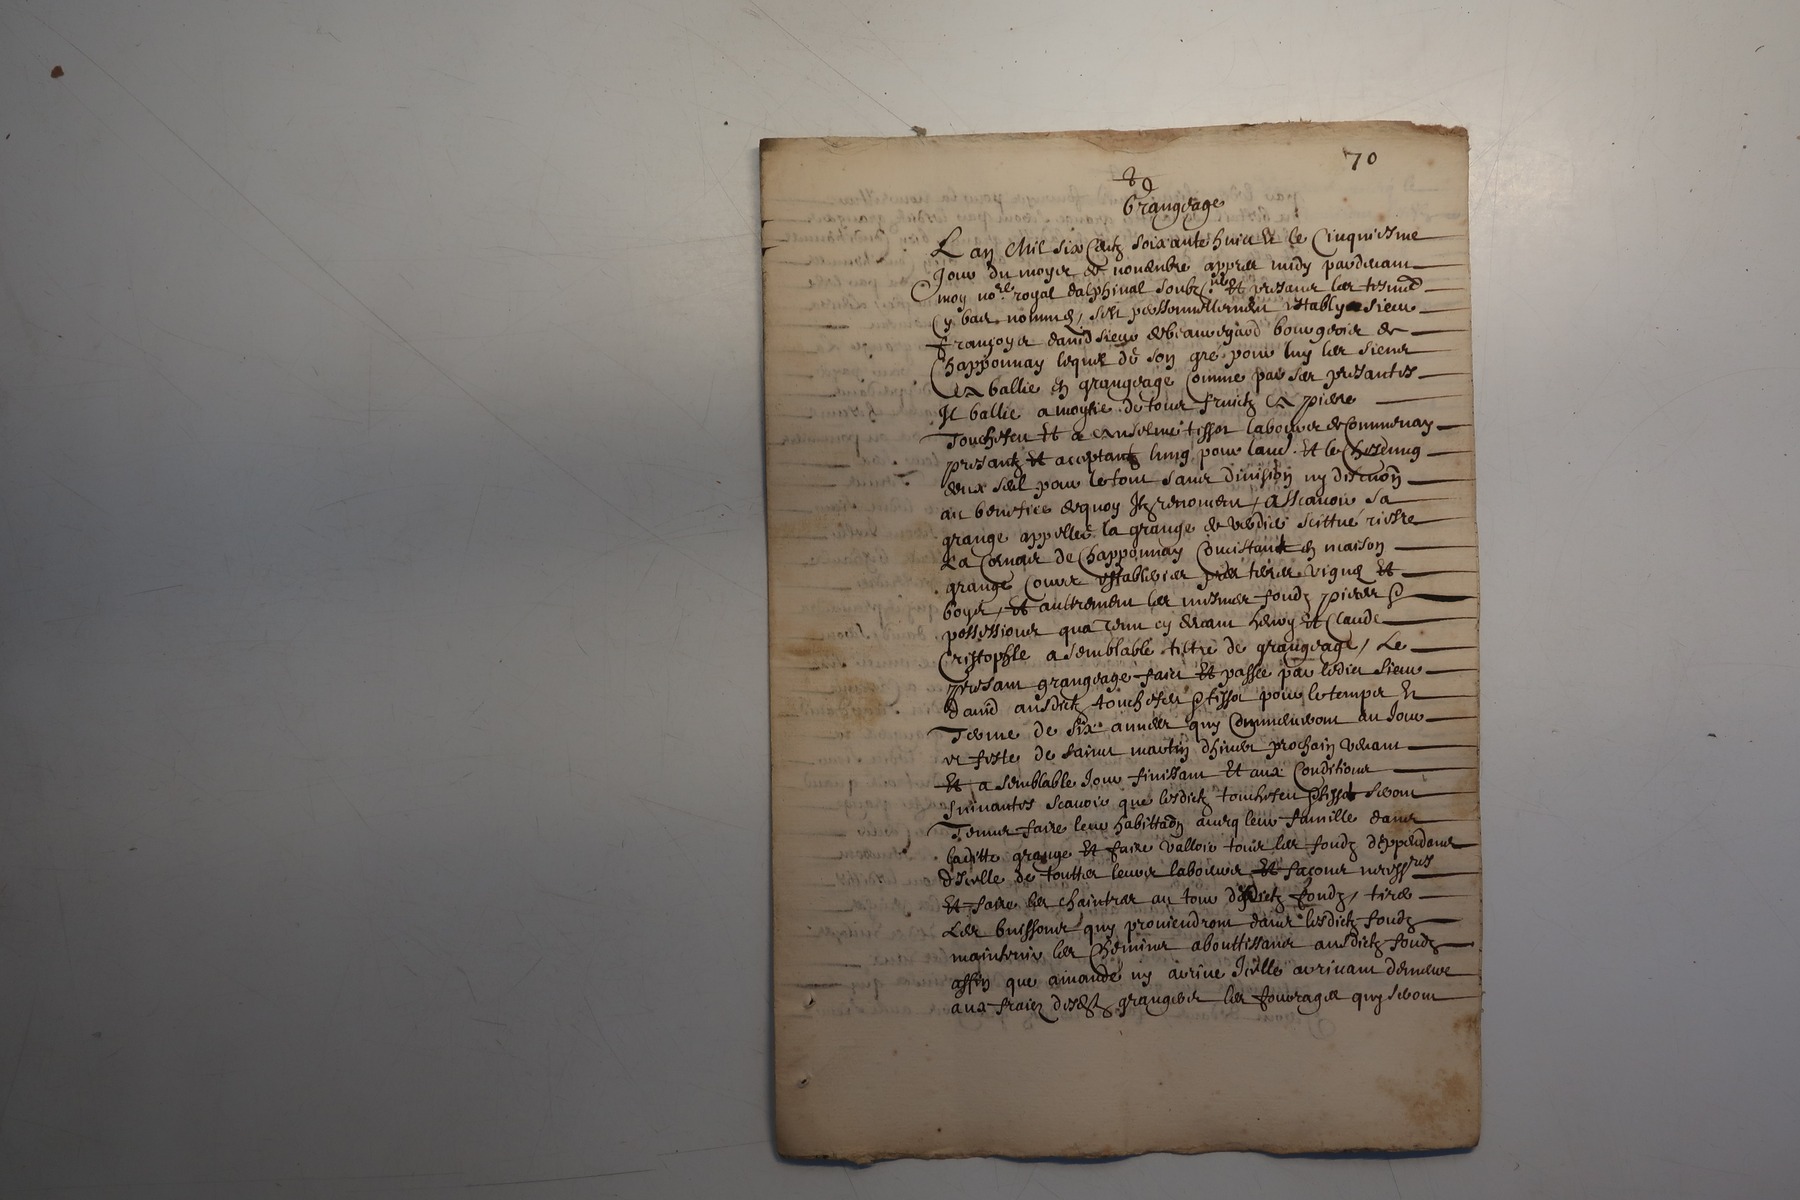 70
Grangeage
Lan Mil six Centz soixante huict Et le Cinquiesme
Jour du moys de novembre appres midy pardevant
moy no.re royal dalphinal soubz.né Et presans les tesmg
Cy bas nommés, sest personnellement estably sieur
françoys david sieur de beauregard bourgeois de
Chapponnay lequel de son gré pour luy les siens
a ballie en grangeage Comme par ses presantes
Il ballie a moytie de tous fruictz a pierre
Et a Anselme tissot laboureur de Communay
presantz Et acceptant lung pour laud. Et le
deux seul pour le tout sans division ny discuon
au benefice dequoy Ilz renoncent, Asscavoir sa
grange appellée la grange de scittué riesre
La de Chapponnay Concistant en maison
grange Couvr establerier pres terres vignes Et
boys, Et aultrement les mesmes fondz pieces &
possessions qua tenu cy devant henry Et Claude
Cristophle a semblable tiltre de grangeage, Le
presant grangeage faict Et passé par ledict sieur
david ausdictz & tissot pour le temps Et
Terme de six années quy Commenceront au Jour
et feste de sainct martin dhiver prochain venant
Et a semblable Jour finissant Et aux Conditions
suivantes scavoir que lesdictz & tissot seront
Tenus faire leur habittaōn avecq leur famille dans
laditte grange Et faire valloir tous les fondz deppendans
dicelle de touttes leurs labeures Et façons necess.res
Et faire les chaintres au tour desdictz fondz, tirer
Les buissons quy proviendront dans lesdictz fondz
maintenir les Chemins abouttissans ausdictz fondz
affin que amande ny arrive Icelle arrivant demeure
aux fraiz desdtz grangers les fourrages quy seront